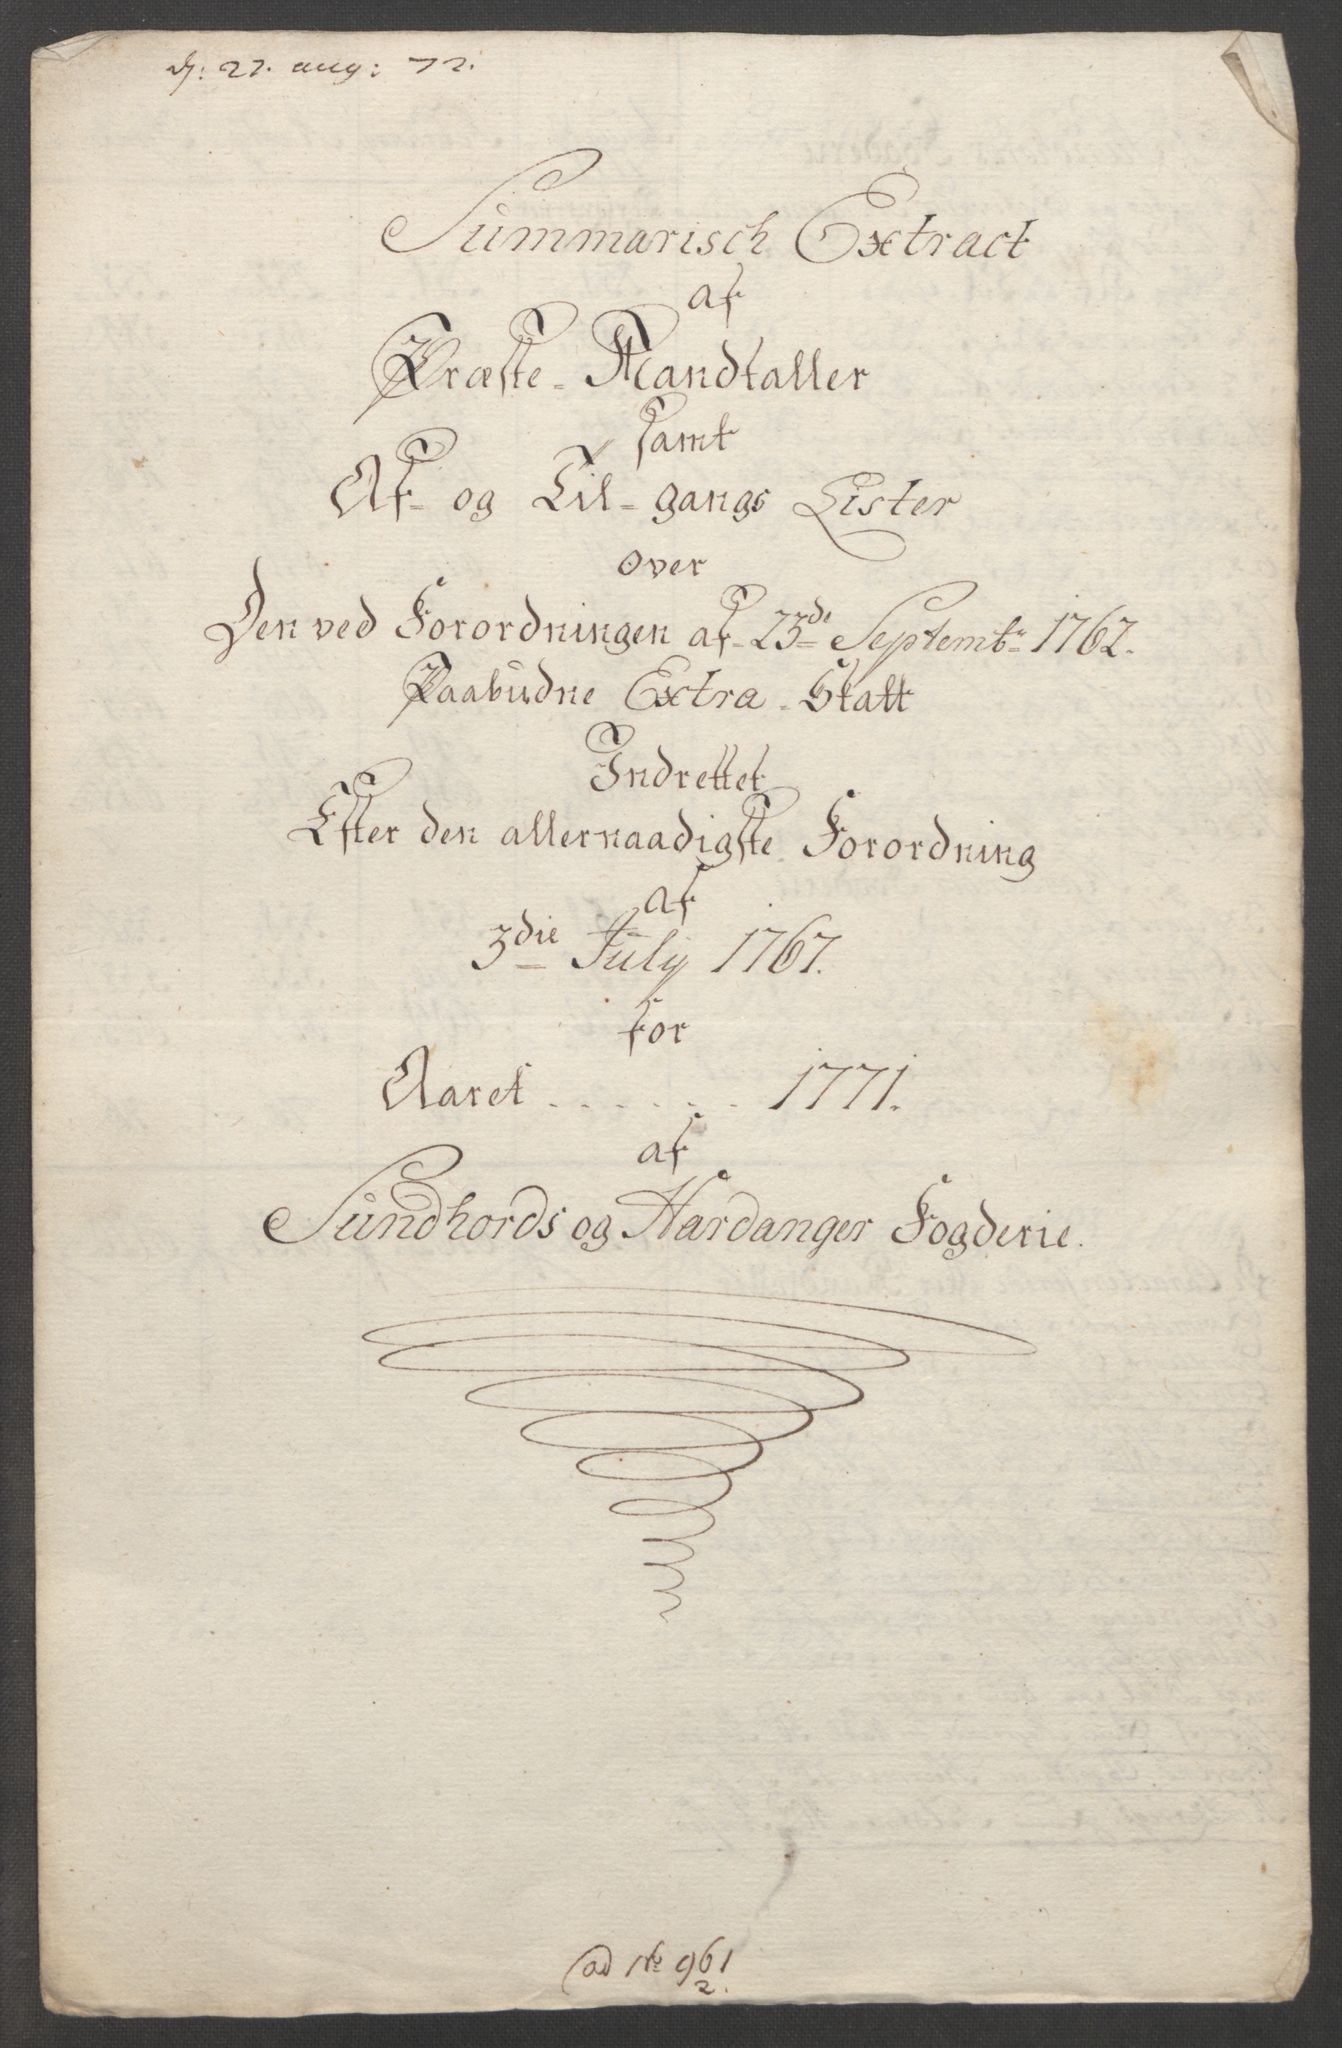 d: 22. aug: 72.
Summarisch Extract
af
Præste-Mandtaller
samt
Af- og Til-gangs Lister
over
Den ved Forordningen af 23de Septembr 1762.
Paabudne Extra-Skatt
Indrettet
Efter den allernaadigste Forordning
af
3die July 1767.
for
Aaret . . . . . . 1771.
af
Sundhords og Hardanger Fogderie.
ad No 961
2.